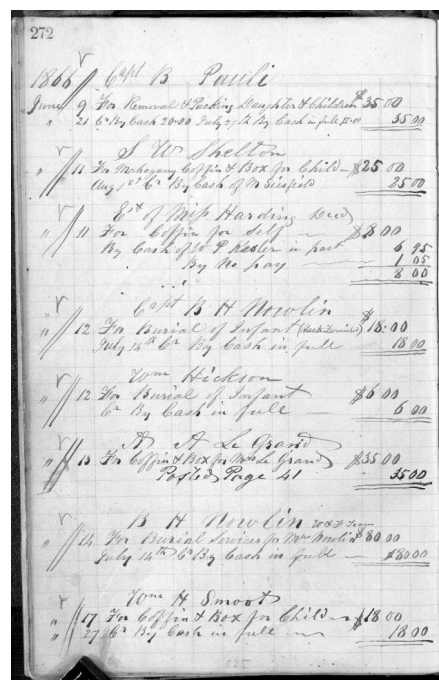 272
1866 Capt B Pauli
June 9 For Removal & Packing Daughter & Children $35 00
" 21 Cr By Cash 20.00 July 27th By Cash in full 15.00 35 00
S W Shelton
" 11 For Mahogany Coffin & Box for Child $25 00
Aug 1st Cr By Cash of 25 00
Est of Miss Harding Decd
" 11 For Coffin for Self $8 00
By Cash of W P Kesler in part 6 95
By No pay 1 05
8 00
Capt B H Nowlin
" 12 For Burial of Infant (Hack Furnished) $18.00
July 14th Cr By Cash in full 18 00
Wm Hickson
" 12 For Burial of Infant $6 00
Cr By Cash in full 6 00
A A Le Grand
" 13 For Coffin & Box for Mrs Le Grand $35 00
Posted Page 41 35 00
B H Nowlin
" 14 For Burial Services for Mrs Nowlin $80 00
July 14th Cr By Cash in full $80 00
Wm H Smoot
" 17 For Coffin & Box for Child $18 00
" 27 Cr By Cash in full 18 00